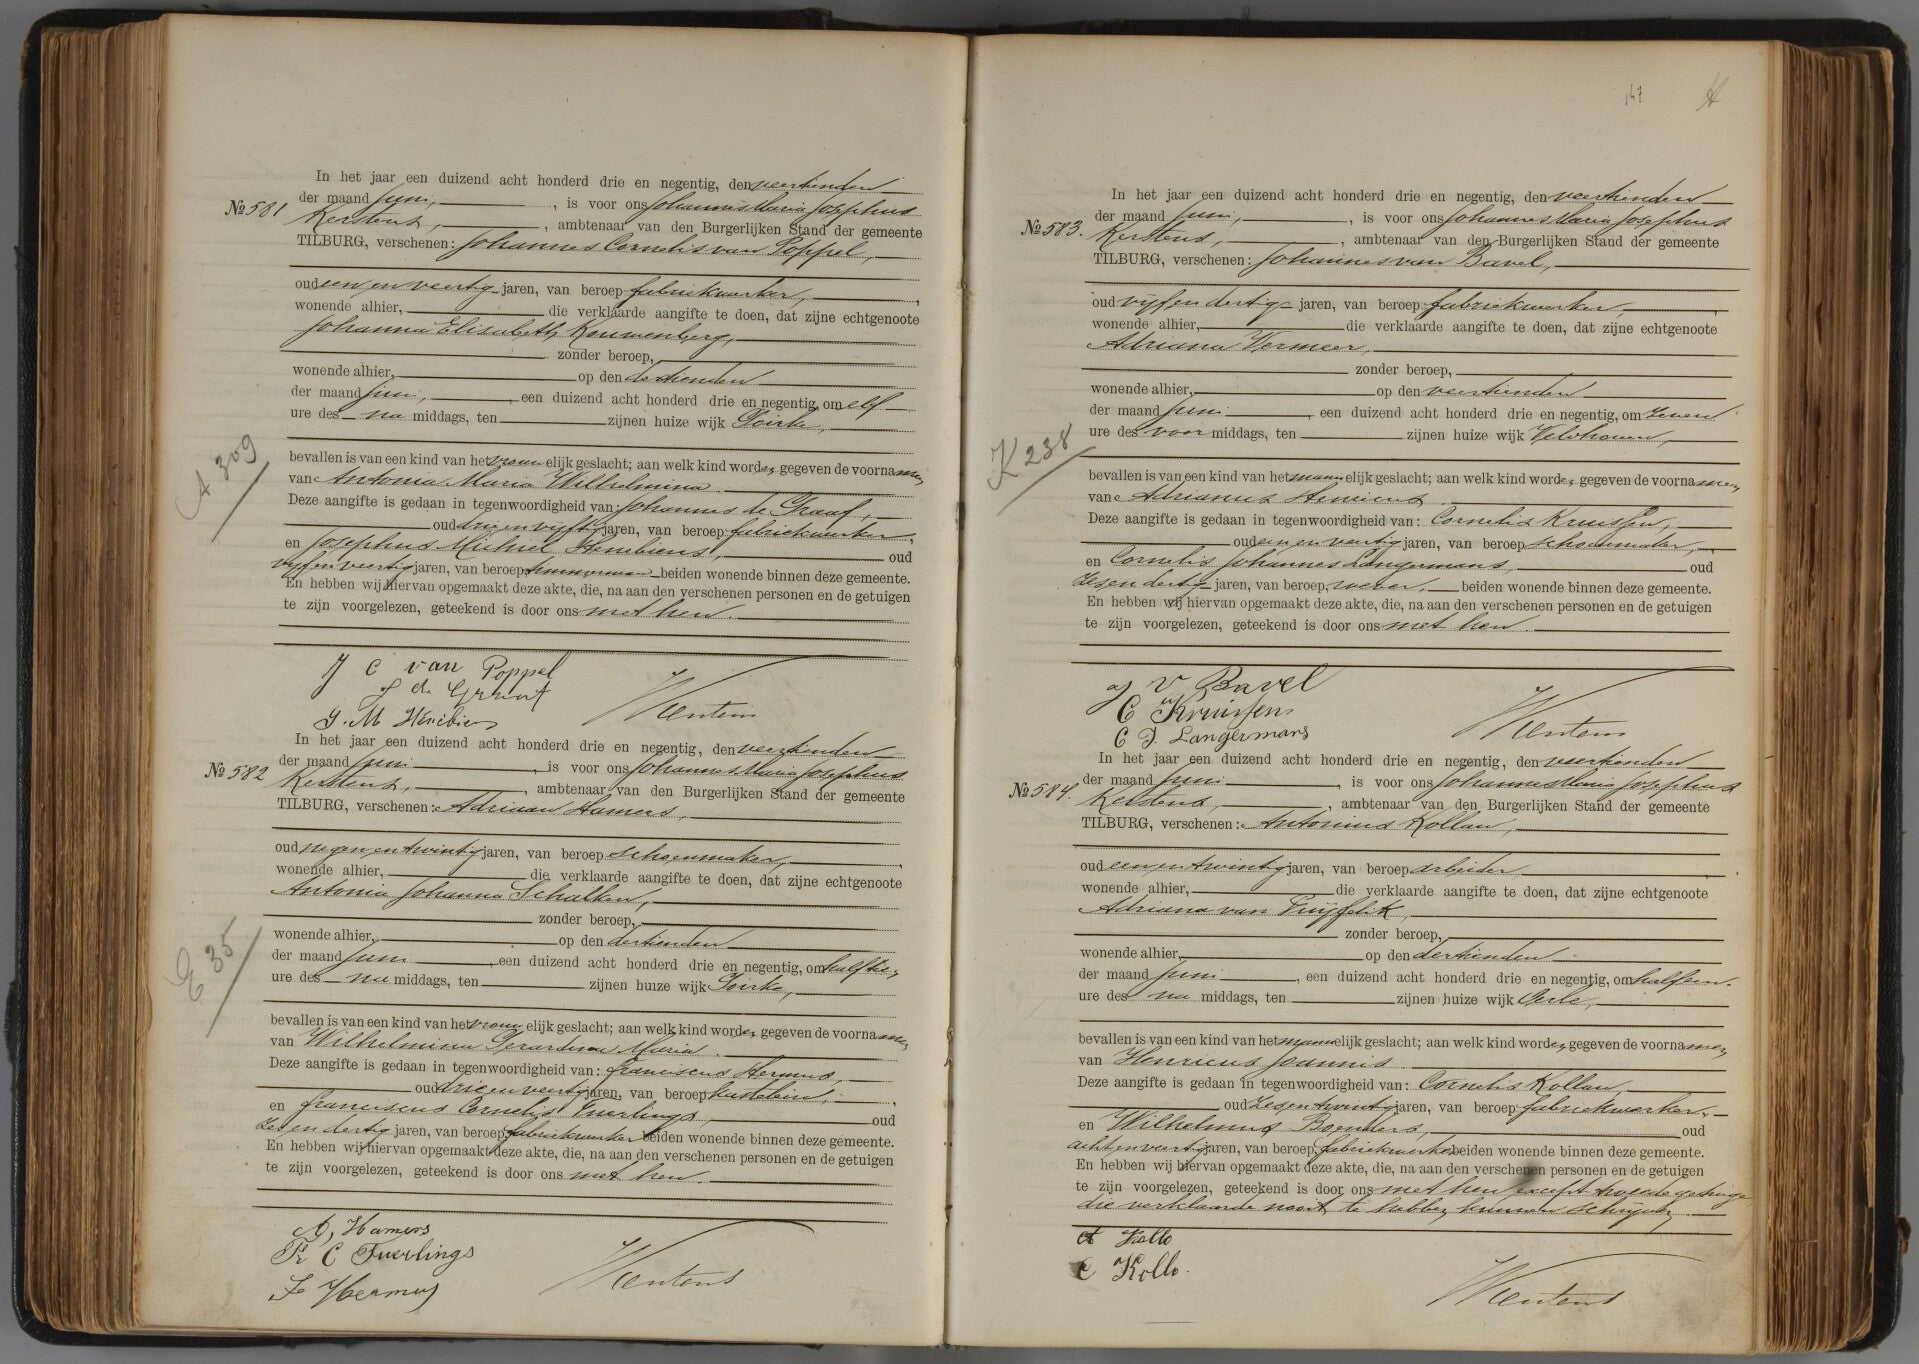 In het jaar een duizend acht honderd drie en negentig, den veertienden
No 581 der maand Juni, is voor ons Johannes Maria Josephus
Kerstens, ambtenaar van den Burgerlijken Stand der gemeente
TILBURG, verschenen: Johannes Cornelis van Poppel,
oud een en veertig jaren, van beroep fabriekwerker,
wonende alhier, die verklaarde aangifte te doen, dat zijne echtgenoote
Johanna Elisabeth Kouwenberg,
zonder beroep,
wonende alhier, op den dertienden
der maand Juni, een duizend acht honderd drie en negentig, om elf
ure des na middags, ten zijnen huize wijk Goirke,
A 309
bevallen is van een kind van het vrouwelijk geslacht; aan welk kind worden gegeven de voornamen
van Antonia Maria Wilhelmina
Deze aangifte is gedaan in tegenwoordigheid van: Johannes de Graaf,
oud drie en vijftig jaren, van beroep fabriekwerker,
en Josephus Michiel oud
vijf en veertig jaren, van beroep, timmerman beiden wonende binnen deze gemeente.
En hebben wij hiervan opgemaakt deze akte, die, na aan den verschenen personen en de getuigen
te zijn voorgelezen, geteekend is door ons met hen.
J C van Poppel
J de Graaf
J. M
Kerstens
In het jaar een duizend acht honderd drie en negentig, den veertienden
No 582 der maand Juni, is voor ons Johannes Maria Josephus
Kerstens, ambtenaar van den Burgerlijken Stand der gemeente
TILBURG, verschenen: Adriaan Hamers,
oud negen en twintig jaren, van beroep schoenmaker,
wonende alhier, die verklaarde aangifte te doen, dat zijne echtgenoote
Antonia Johanna Schalken,
zonder beroep,
wonende alhier, op den dertienden
der maand Juni, een duizend acht honderd drie en negentig, om half tien
ure des na middags, ten zijnen huize wijk Goirke,
E 35
bevallen is van een kind van het vrouwelijk geslacht; aan welk kind worden gegeven de voornamen
van Wilhelmina Gerardina Maria.
Deze aangifte is gedaan in tegenwoordigheid van: Franciscus Hermus,
oud drie en veertig jaren, van beroep
en Franciscus Cornelis Tuerlings, oud
zes en dertig jaren, van beroep fabriekwerker beiden wonende binnen deze gemeente.
En hebben wij hiervan opgemaakt deze akte, die, na aan den verschenen personen en de getuigen
te zijn voorgelezen, geteekend is door ons met hen.
A, Hamers
Fr C Tuerlings
F Hermus
Kerstens
147
In het jaar een duizend acht honderd drie en negentig, den veertienden
No 583. der maand Juni, is voor ons Johannes Maria Josephus
Kerstens, ambtenaar van den Burgerlijken Stand der gemeente
TILBURG, verschenen: Johannes van Bavel,
oud vijf en dertig jaren, van beroep fabriekwerker,
wonende alhier, die verklaarde aangifte te doen, dat zijne echtgenoote
Adriana Vermeer,
zonder beroep,
wonende alhier, op den veertienden
der maand Juni, een duizend acht honderd drie en negentig, om zeven
ure des voor middags, ten zijnen huize wijk Veldhoven,
K 238
bevallen is van een kind van het mannelijk geslacht; aan welk kind worden gegeven de voornamen
van Adrianus Henricus
Deze aangifte is gedaan in tegenwoordigheid van: Cornelis Kruissen,
oud een en veertig jaren, van beroep schoenmaker,
en Cornelis Johannes Langermans, oud
zes en dertig jaren, van beroep, wever, beiden wonende binnen deze gemeente.
En hebben wij hiervan opgemaakt deze akte, die, na aan den verschenen personen en de getuigen
te zijn voorgelezen, geteekend is door ons met hen.
J v Bavel
C Kruissen
C J. Langermans
Kerstens
In het jaar een duizend acht honderd drie en negentig, den veertienden
No 584. der maand Juni, is voor ons Johannes Maria Josephus
Kerstens, ambtenaar van den Burgerlijken Stand der gemeente
TILBURG, verschenen: Antonius Kollau,
oud een en twintig jaren, van beroep arbeider,
wonende alhier, die verklaarde aangifte te doen, dat zijne echtgenoote
Adriana van Puijfelik,
zonder beroep,
wonende alhier, op den dertienden
der maand Juni, een duizend acht honderd drie en negentig, om half een
ure des na middags, ten zijnen huize wijk Oerle,
bevallen is van een kind van het mannelijk geslacht; aan welk kind worden gegeven de voornamen
van Henricus Joannis
Deze aangifte is gedaan in tegenwoordigheid van: Cornelis Kollau,
oud zes en twintig jaren, van beroep fabriekwerker,
en Wilhelmus Boenders, oud
acht en veertig jaren, van beroep, fabriekwerker beiden wonende binnen deze gemeente.
En hebben wij hiervan opgemaakt deze akte, die, na aan den verschenen personen en de getuigen
te zijn voorgelezen, geteekend is door ons met hen except tweede getuige
die verklaarde nooit te hebben kunnen schrijven
A Kollo
C Kollo.
Kerstens